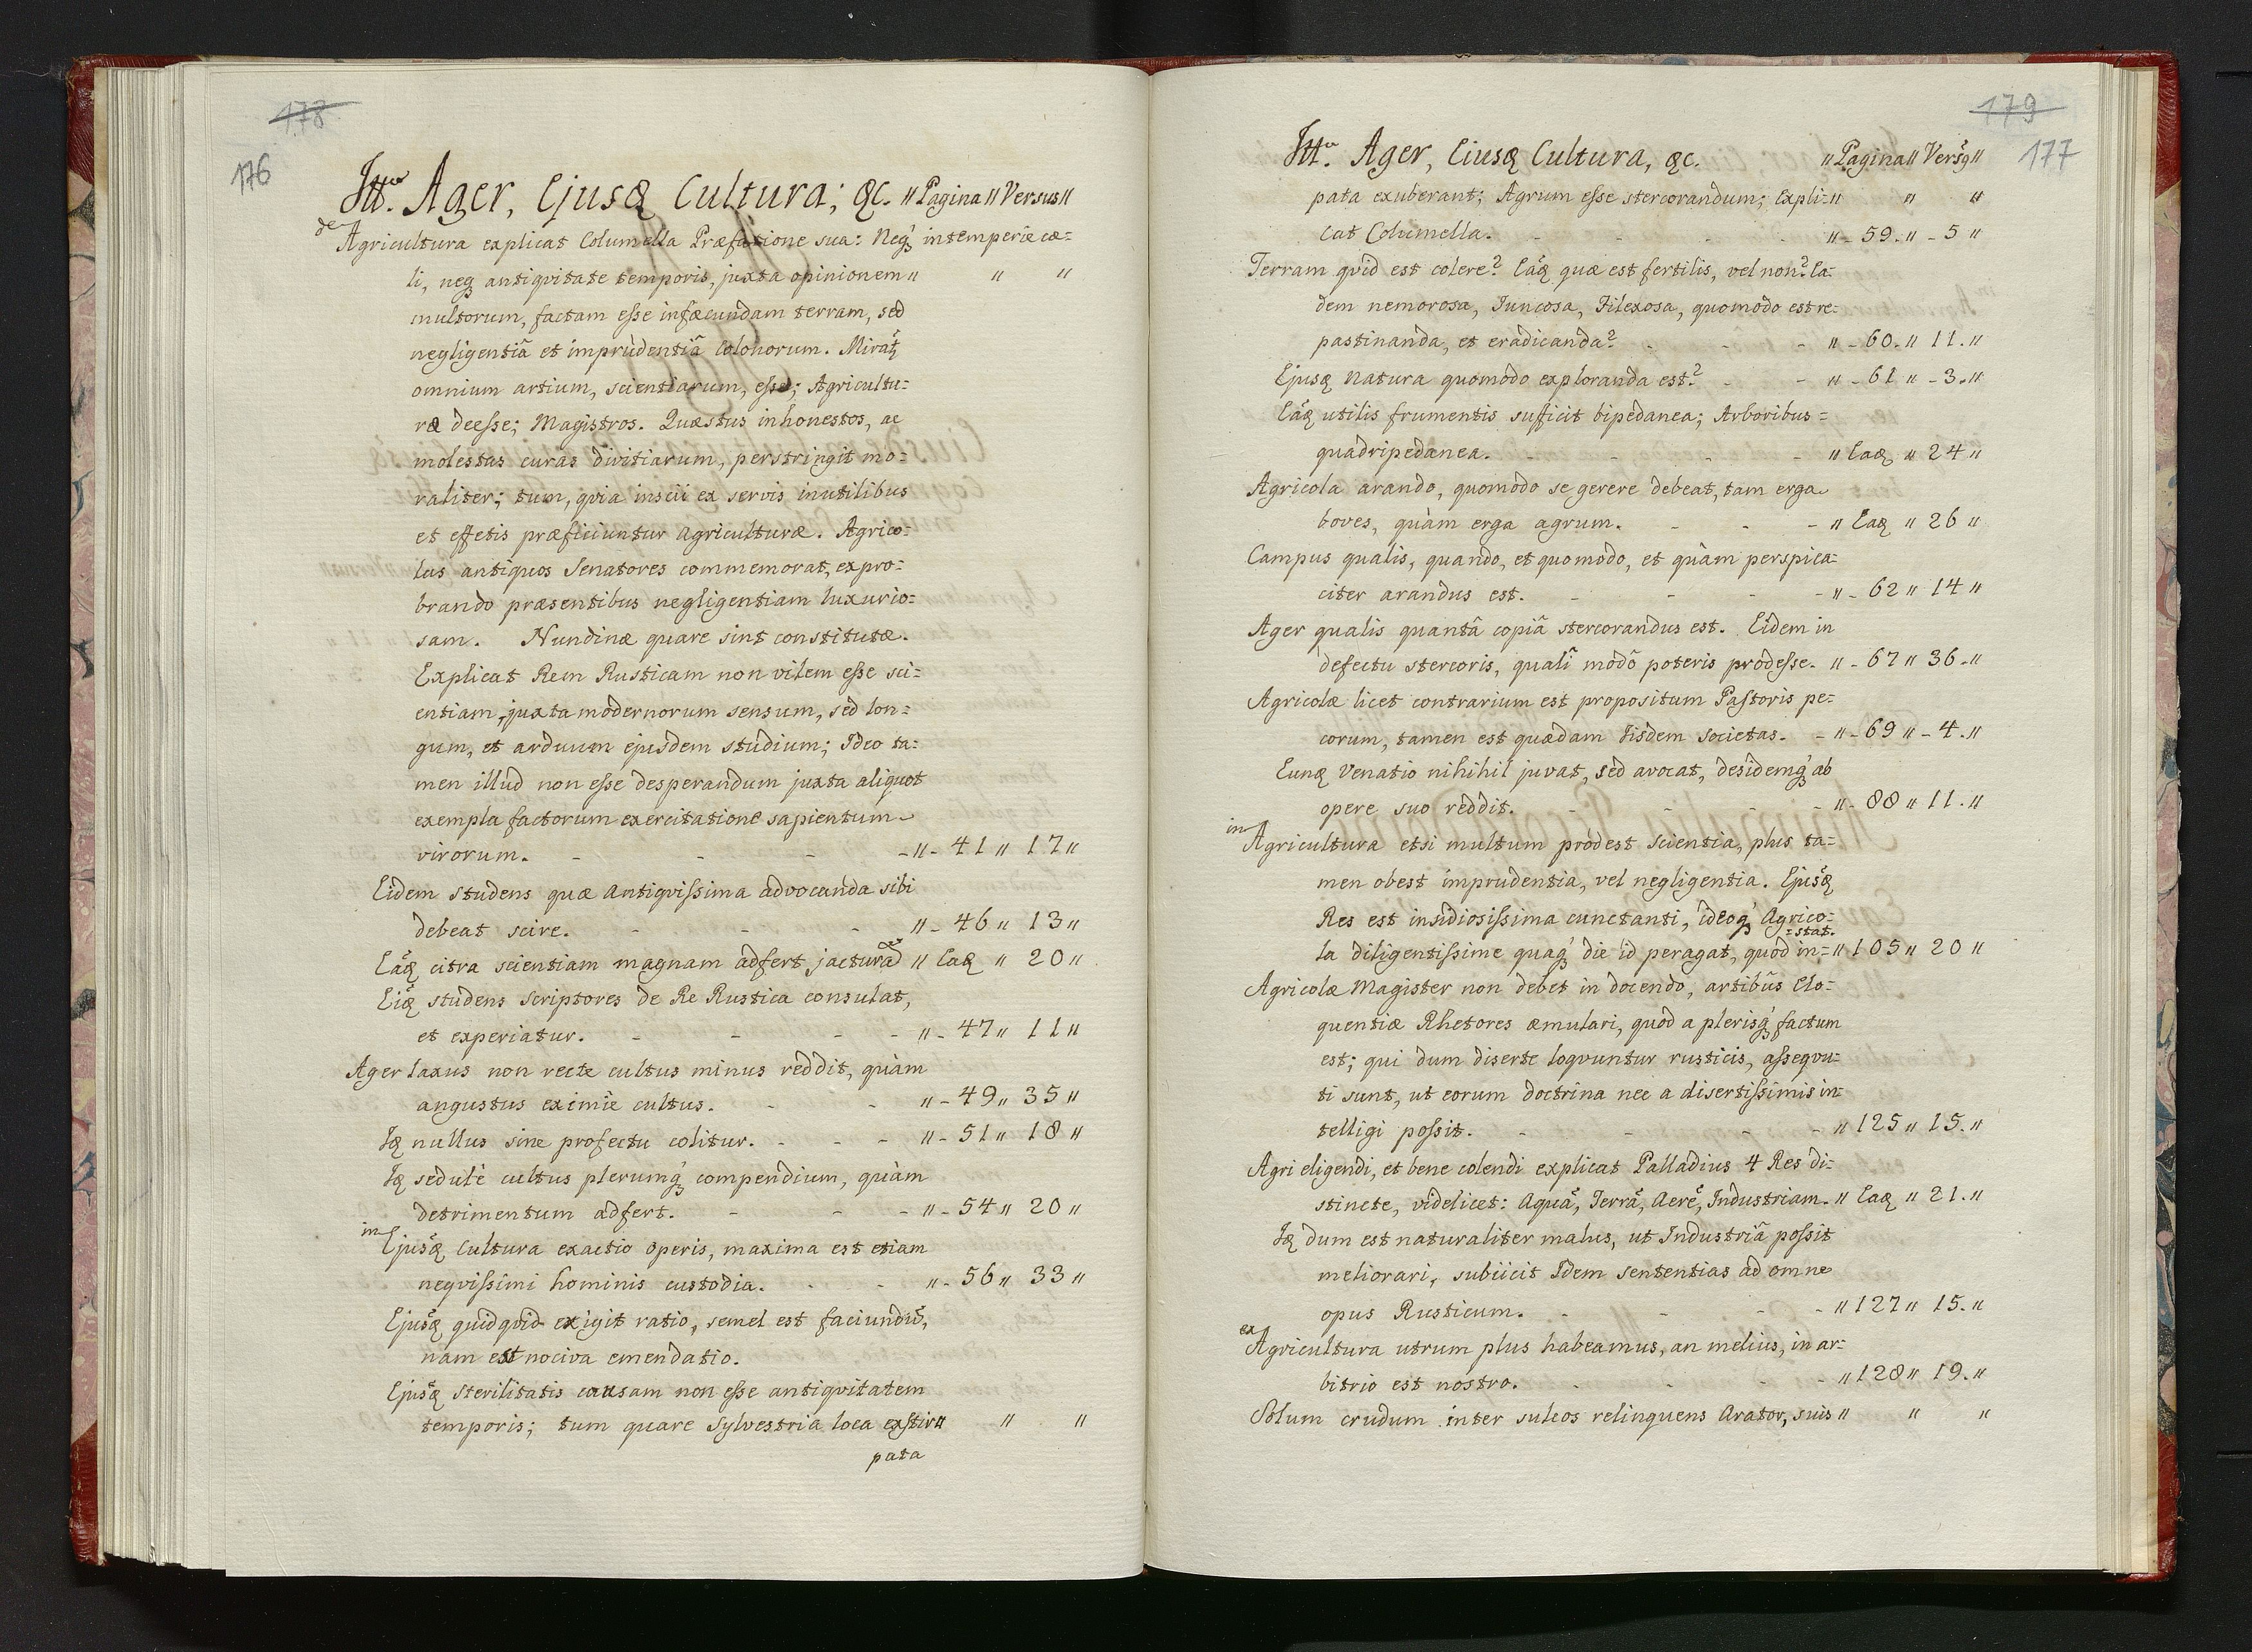 178
176
Ittª. Ager, Ejusq Cultura; &c. " Pagina " Versus "
de Agricultura explicat Columella Præfatione sua: Neq intemperie cæ=
li, neq antiqvitate temporis, juxta opinionem " " "
multorum, factam esse infæcundam terram, sed
negligentiâ et imprudentiâ Colonorum. Mirat
omnium artium, scientiarum, esse; Agricultu=
ræ deesse; Magistros. Quæstus inhonestos, ac
molestas curas divitiarum, perstringit mo=
raliter; tum, qvia inscii ex servis inutilibus
et effetis præficiuntur agriculturæ. Agrico=
las antiquos Senatores commemorat, expro=
brando præsentibus negligentiam luxurio=
sam. Nundinæ quare sint constitutæ.
Explicat Rem Rusticam non vilem esse sci=
entiam, juxta modernorum sensum, sed lon=
gum, et arduum ejusdem studium; Ideo ta=
men illud non esse desperandum juxta aliquot
exempla factorum exercitatione sapientum
virorum. - - - - " - 41 " 17 "
Eidem studens quæ Antiqvissima advocanda sibi
debeat scire. - - - " - 46 " 13 "
Eaq citra scientiam magnam adfert jactura " Eaq " 20 "
Eiq studens Scriptores de Re Rustica consulat,
et experiatur. - - - - " - 47 " 11 "
Ager laxus non recte cultus minus reddit, quàm
angustus eximie cultus. - - " - 49 " 35 "
Iq nullus sine profectu colitur. - - - " - 51 " 18 "
Iq sedulè cultus plerumq compendium, quàm
detrimentum adfert. - - - " - 54 " 20 "
in Ejusq Cultura exactio operis, maxima est etiam
neqvissimi hominis custodia. - - " - 56 " 33 "
Ejusq quidqvid exigit ratio, semel est faciundu,
nam est nociva emendatio.
Ejusq sterilitatis causam non esse antiqvitatem
temporis; tum quare Sylvestria loca exstir " " "
pata
179
177
Ittª. Ager, Eiusq Cultura, &c. " Pagina " Versq "
pata exuberant; Agrum esse stercorandum; Expli= " " "
cat Columella. - - - - " - 59. " - 5 "
Terram qvid est colere? Eaq quæ est fertilis, vel non? Ea=
dem nemorosa, Juncosa, Filexosa, quomodo est re=
pastinanda, et eradicanda? - - - " - 60. " 11. "
Ejusq Natura quomodo exploranda est? - - " - 61 " - 3. "
Eaq utilis frumentis sufficit bipedanea; Arboribus =
quadripedanea. - - - - " Eaq " 24 "
Agricola arando, quomodo se gerere debeat, tam erga
boves, quàm erga agrum. - - - " Eaq " 26 "
Campus qualis, quando, et quomodo, et quàm perspica=
citer arandus est. - - - - " - 62 " 14 "
Ager qualis quantâ copiâ stercorandus est. Eidem in
defectu stercoris, quali modo poteris prodesse. " - 67 " 36 - "
Agricolæ licet contrarium est propositum Pastoris pe=
corum, tamen est quædam iisdem societas. - " - 69 " - 4. "
Eunq Venatio nihihil juvat, sed avocat, desidemq ab
opere suo reddit. - - - - " - 88 " 11. "
in Agricultura etsi multum prodest scientia, plus ta=
men obest imprudentia, vel negligentia. Ejusq
Res est insidiosissima cunctanti, ideoq Agrico=
=stat.
la diligentissime quaq die id peragat, quod in= " 105 " 20 "
Agricolæ Magister non debet in docendo, artibus Elo=
quentiæ Rhetores æmulari, quod a plerisq factum
est; qui dum diserte loqvuntur rusticis, asseqvu=
ti sunt, ut eorum doctrina nec a disertissimis in=
telligi possit. - - - - " 125 " 15. "
Agri eligendi, et bene colendi explicat Palladius 4 Res di=
stincte, videlicet: Aqua, Terra, Aere, Industriam. " Eaq " 21. "
Iq dum est naturaliter malus, ut Industriâ possit
meliorari, subiicit Idem sententias ad omne
opus Rusticum. - - - - " 127 " 15. "
ex Agricultura utrum plus habeamus, an melius, in ar=
bitrio est nostro. - - - - " 128 " 19. "
Solum crudum inter sulcos relinquens Arator, suis " " "